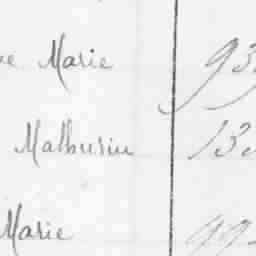 Marie 93
Mathurin 13
Marie 99